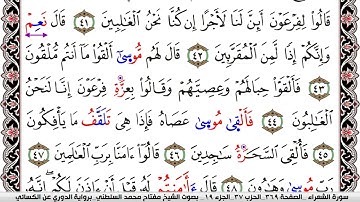 قَالُوا۟ لِفِرْعَوْنَ أَئِنَّ لَنَا لَأَجْرًا إِن كُنَّا نَحْنُ ٱلْغَٰلِبِينَ ٤١ قَالَ نَعِمْ
وَإِنَّكُمْ إِذًا لَّمِنَ ٱلْمُقَرَّبِينَ ٤٢ قَالَ لَهُم مُّوسَىٰٓ أَلْقُوا۟ مَآ أَنتُم مُّلْقُونَ
٤٣ فَأَلْقَوْا۟ حِبَالَهُمْ وَعِصِيَّهُمْ وَقَالُوا۟ بِعِزَّةِ فِرْعَوْنَ إِنَّا لَنَحْنُ
ٱلْغَٰلِبُونَ ٤٤ فَأَلْقَىٰ مُوسَىٰ عَصَاهُ فَإِذَا هِىَ تَلَقَّفُ مَا يَأْفِكُونَ
٤٥ فَأُلْقِىَ ٱلسَّحَرَةُ سَٰجِدِينَ ٤٦ قَالُوٓا۟ ءَامَنَّا بِرَبِّ ٱلْعَٰلَمِينَ ٤٧
رَبِّ مُوسَىٰ وَهَٰرُونَ ٤٨ قَالَ ءَأَٰمَنتُمْ لَهُۥ قَبْلَ أَنْ ءَاذَنَ لَكُمْ إِنَّهُۥ
سورة الشعراء . الصفحة ٣٦٩ . الحزب ٣٧ . الجزء ١٩ . بصوت الشيخ مفتاح محمد السلطني . برواية الدوري عن الكسائي